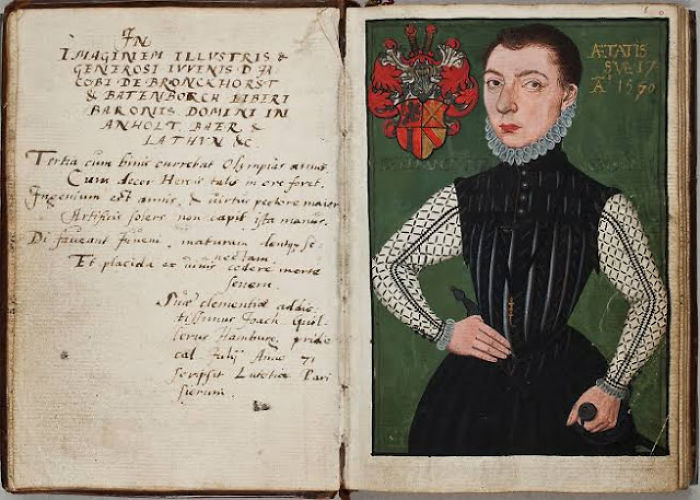 IN
IMAGINEM ILLUSTRIS &
GENEROSI IVVENIS D IA
COBI DE BRONCKHORST
& BATENBORCH LIBERI
BARONIS DOMINI IN
ANHOLT BAER &
LATHVN &c.
Tertia cum binis currebat Olympias annis,
Cum decor Herois talis in ore foret.
Ingenium est annis, & virtus pectore maior
Artificis solers non capit ista manus.
Di faveant Iuveni, maturam dentque se:
nectam
Et placida ex vivis cedere morte
senem.
Suae clementiae addic
tissimus Joach.
Hamburg. pridie
cal Julij Anno 71
scripsit Lutetiae Pari
siorum.
ÆTATIS
SVE 17
Aº 1570